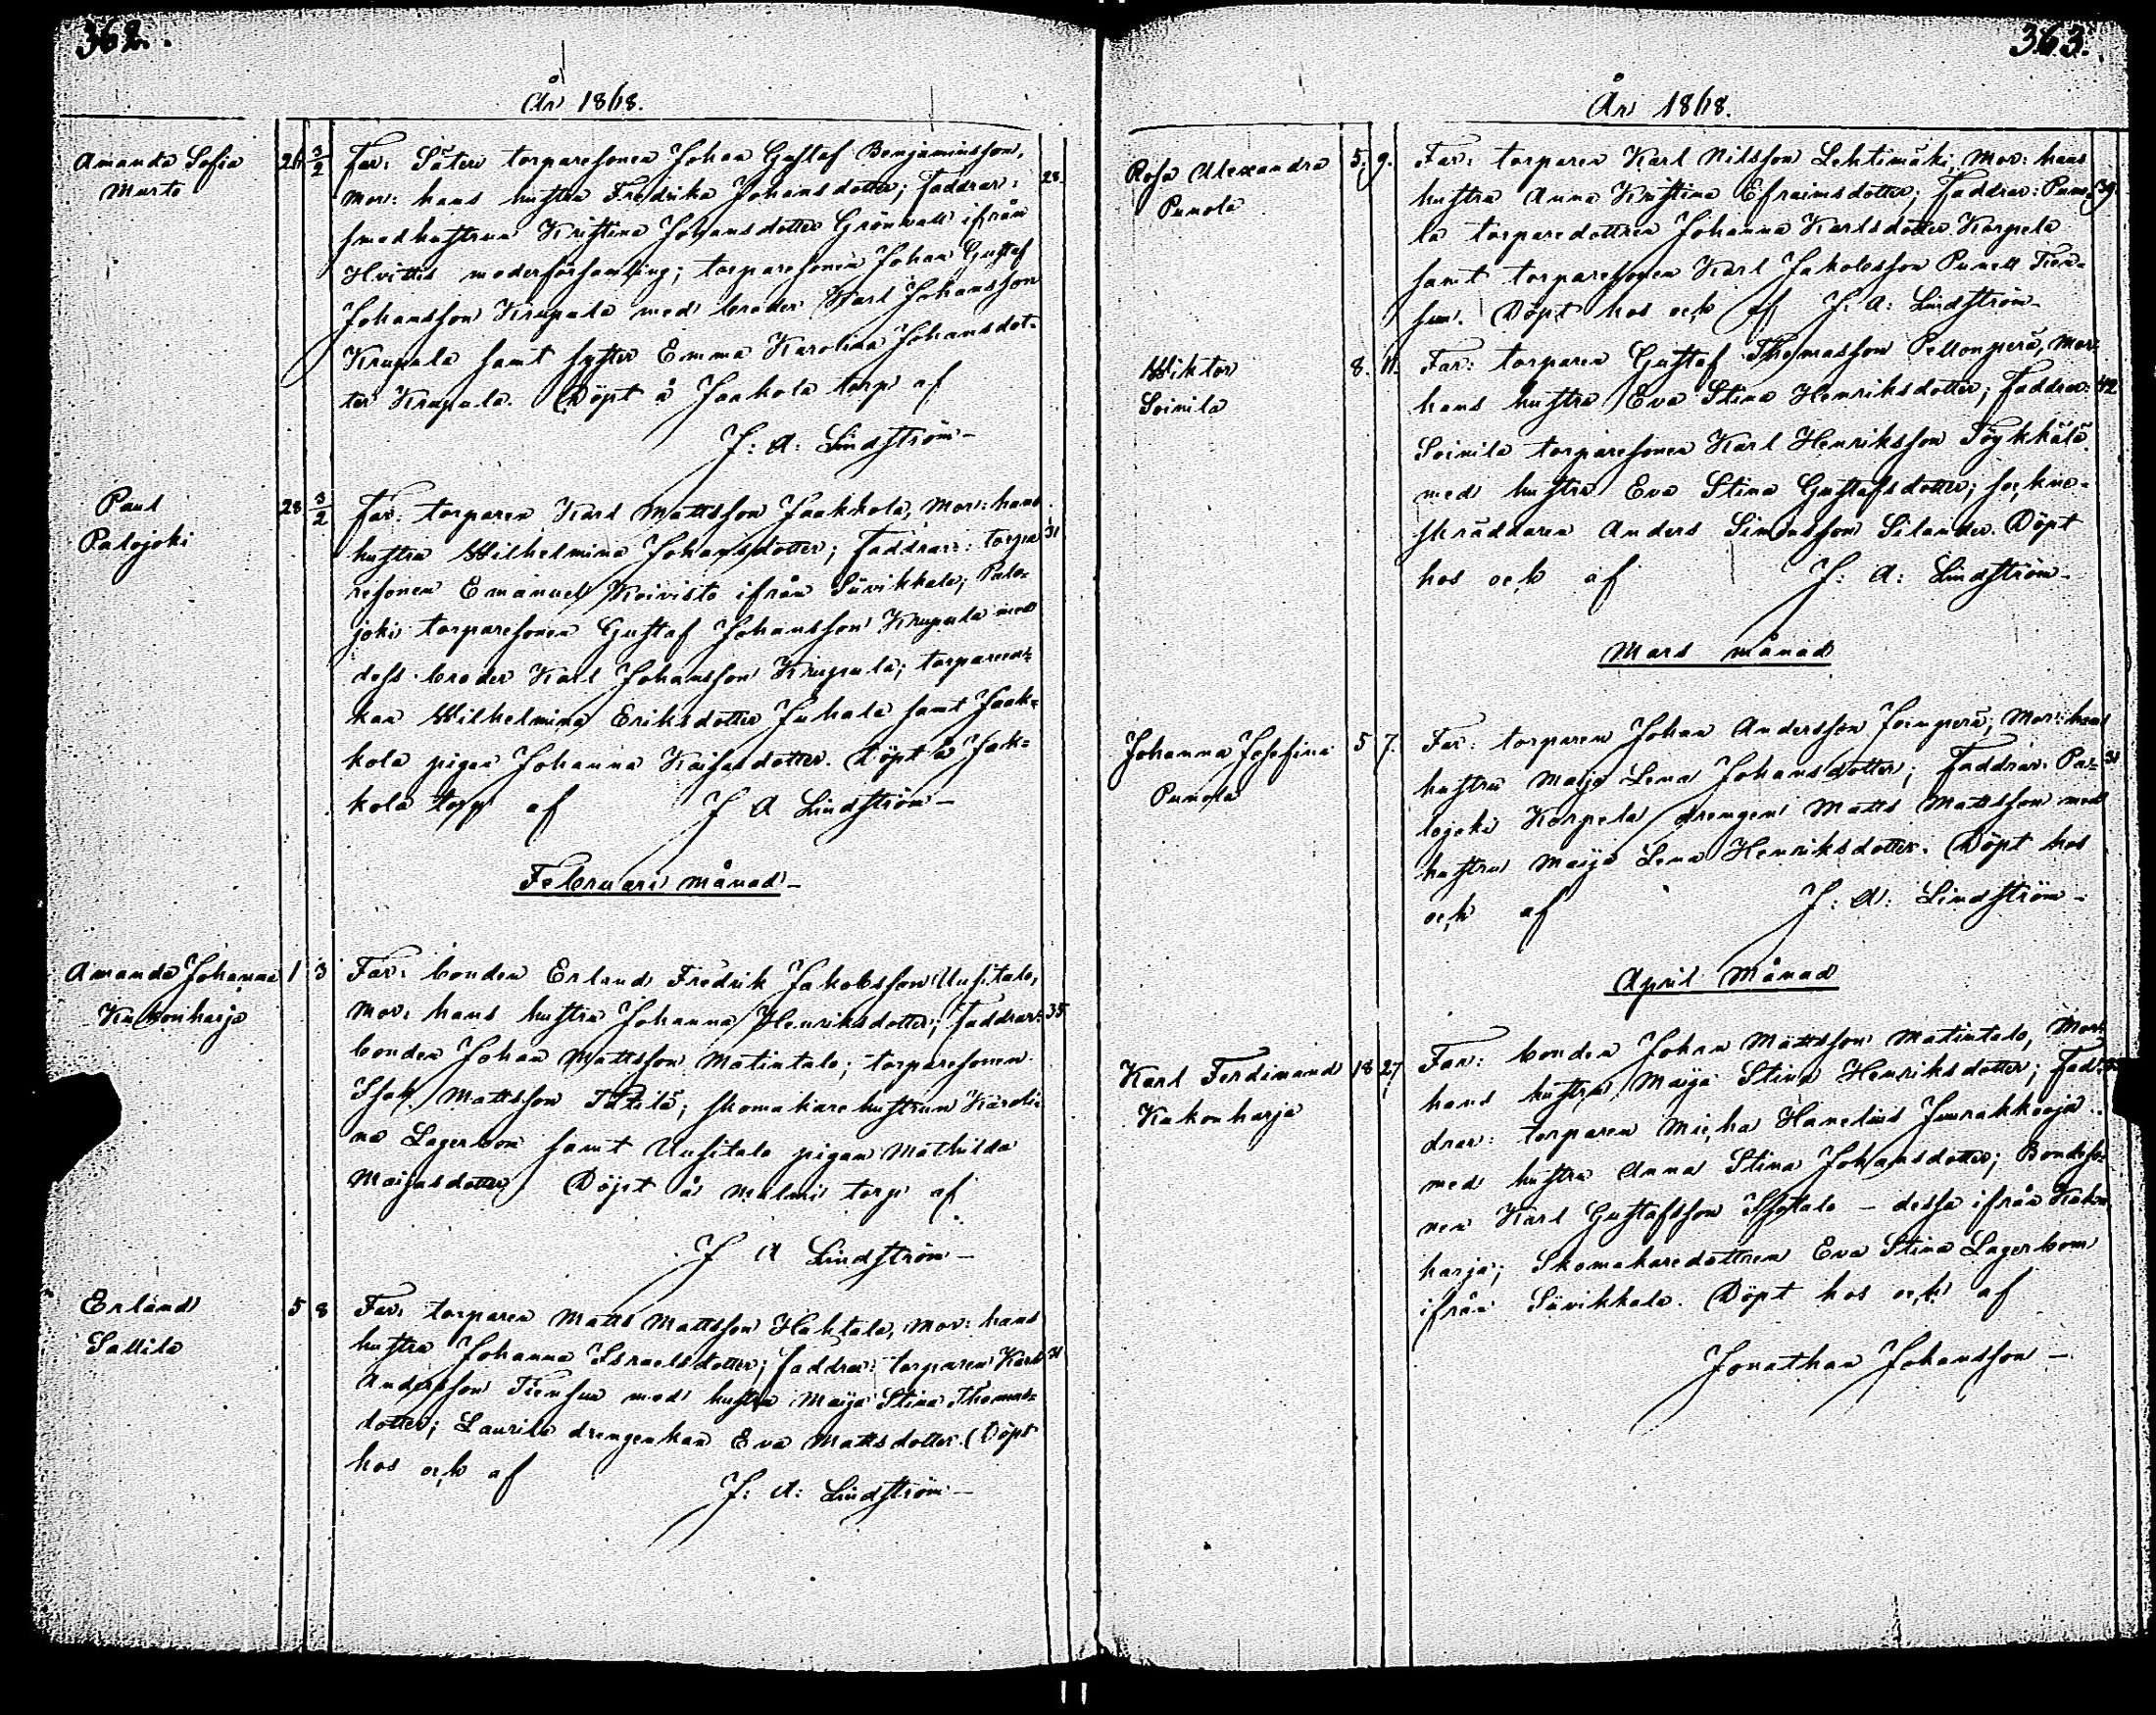 362.
År 1868.
Amanda Sofia 26 3/2 Far: Säteri torparesonen Johan Gustaf Benjaminsson,
Marto Mor: hans hustru Fredrika Johansdotter; faddrar: 28
smedhustrun Kristina Johansdotter Grönvall ifrån
Hvittis moderförsamling; torparesonen Johan Gustaf
Johansson Krupala med broder Karl Johansson
Krupala samt syster Emma Karolina Johansdot-
ter Krupala. Döpt å Jaakola torp af
J: A: Lindström-
Paul 28 3/2 Far: torparen Karl Mattsson Jaakkola, Mor: hans
Palojoki hustru Wilhelmina Johansdotter; Faddrar: torpa 31
resonen Emanuel Koivisto ifrån Süvikkala; Palo-
joki torparesonen Gustaf Johansson Krupala med
dess broder Karl Johansson Krupala; torpareen-
kan Wilhelmina Eriksdotter Juhala samt Jaak-
kola pigan Johanna Kaisasdotter. Döpt å Jaak-
kola torp af J A Lindström-
Februari månad-
Amanda Johanna 1 3 Far: bonden Erland Fredrik Jakobsson Uusitalo,
Kakonharja Mor: hans hustru Johanna Henriksdotter; faddrar: 35
bonden Johan Mattsson Matintalo; torparesonen
Isak Mattsson; skomakarehustrun Karoli-
na Lagerbom samt Uusitalo pigan Mathilda
Maijasdotter. Döpt å Malmi torp af
J A Lindström-
Erland 5 8 Far: torparen Matts Mattsson Huhtala, Mor: hans
Sallila hustru Johanna Israelsdotter; faddrar: torparen Karl 31
Andersson Tiensuu med hustru Maija Stina Thomas-
dotter; Laurila drengenkan Eva Mattsdotter. Döpt
hos och af J: A: Lindström-
363.
År 1868.
Rosa Alexandra 5. 9. Far: torparen Karl Nilsson Lehtimäki, Mor: hans
Punola hustru Anna Kristina Efraimsdotter; Faddrar: Puno- 39.
la torparedottren Johanna Karlsdotter Korpela
samt torparesonen Karl Jakobsson Tien-
suu. Döpt hos och af J: A: Lindström-
Wiktor 8. 11. Far: torparen Gustaf Thomasson Pellonperä, Mor:
Soinila hans hustru Eva Stina Henriksdotter; faddrar: 42
Soinila torparesonen Karl Henriksson Töykkälä
med hustru Eva Stina Gustafsdotter; sockne-
skräddaren Anders Simonsson Silander. Döpt
hos och af J: A: Lindström-
Mars månad
Johanna Josefina 5 7. Far: torparen Johan Andersson, Mor: hans
Punola hustru Maija Lena Johansdotter; Faddrar: Pa- 31
lojoki Korpela drengen Matts Mattsson med
hustru Maija Lena Henriksdotter. Döpt hos
och af J: A: Lindström-
April månad
Karl Ferdinand 18 27 Far: bonden Johan Mattsson Matintalo, Mor:
Kakonharja hans hustru Maija Stina Henriksdotter; Fad-
drar: torparen Micha Hanelius
med hustru Anna Stina Johansdotter; Bondeso-
nen Karl Gustafsson Isotalo - dessa ifrån Kakon
harja; Skomakaredottren Eva Stina Lagerbom
ifrån Süvikkala. Döpt hos och af
Jonathan Johansson-